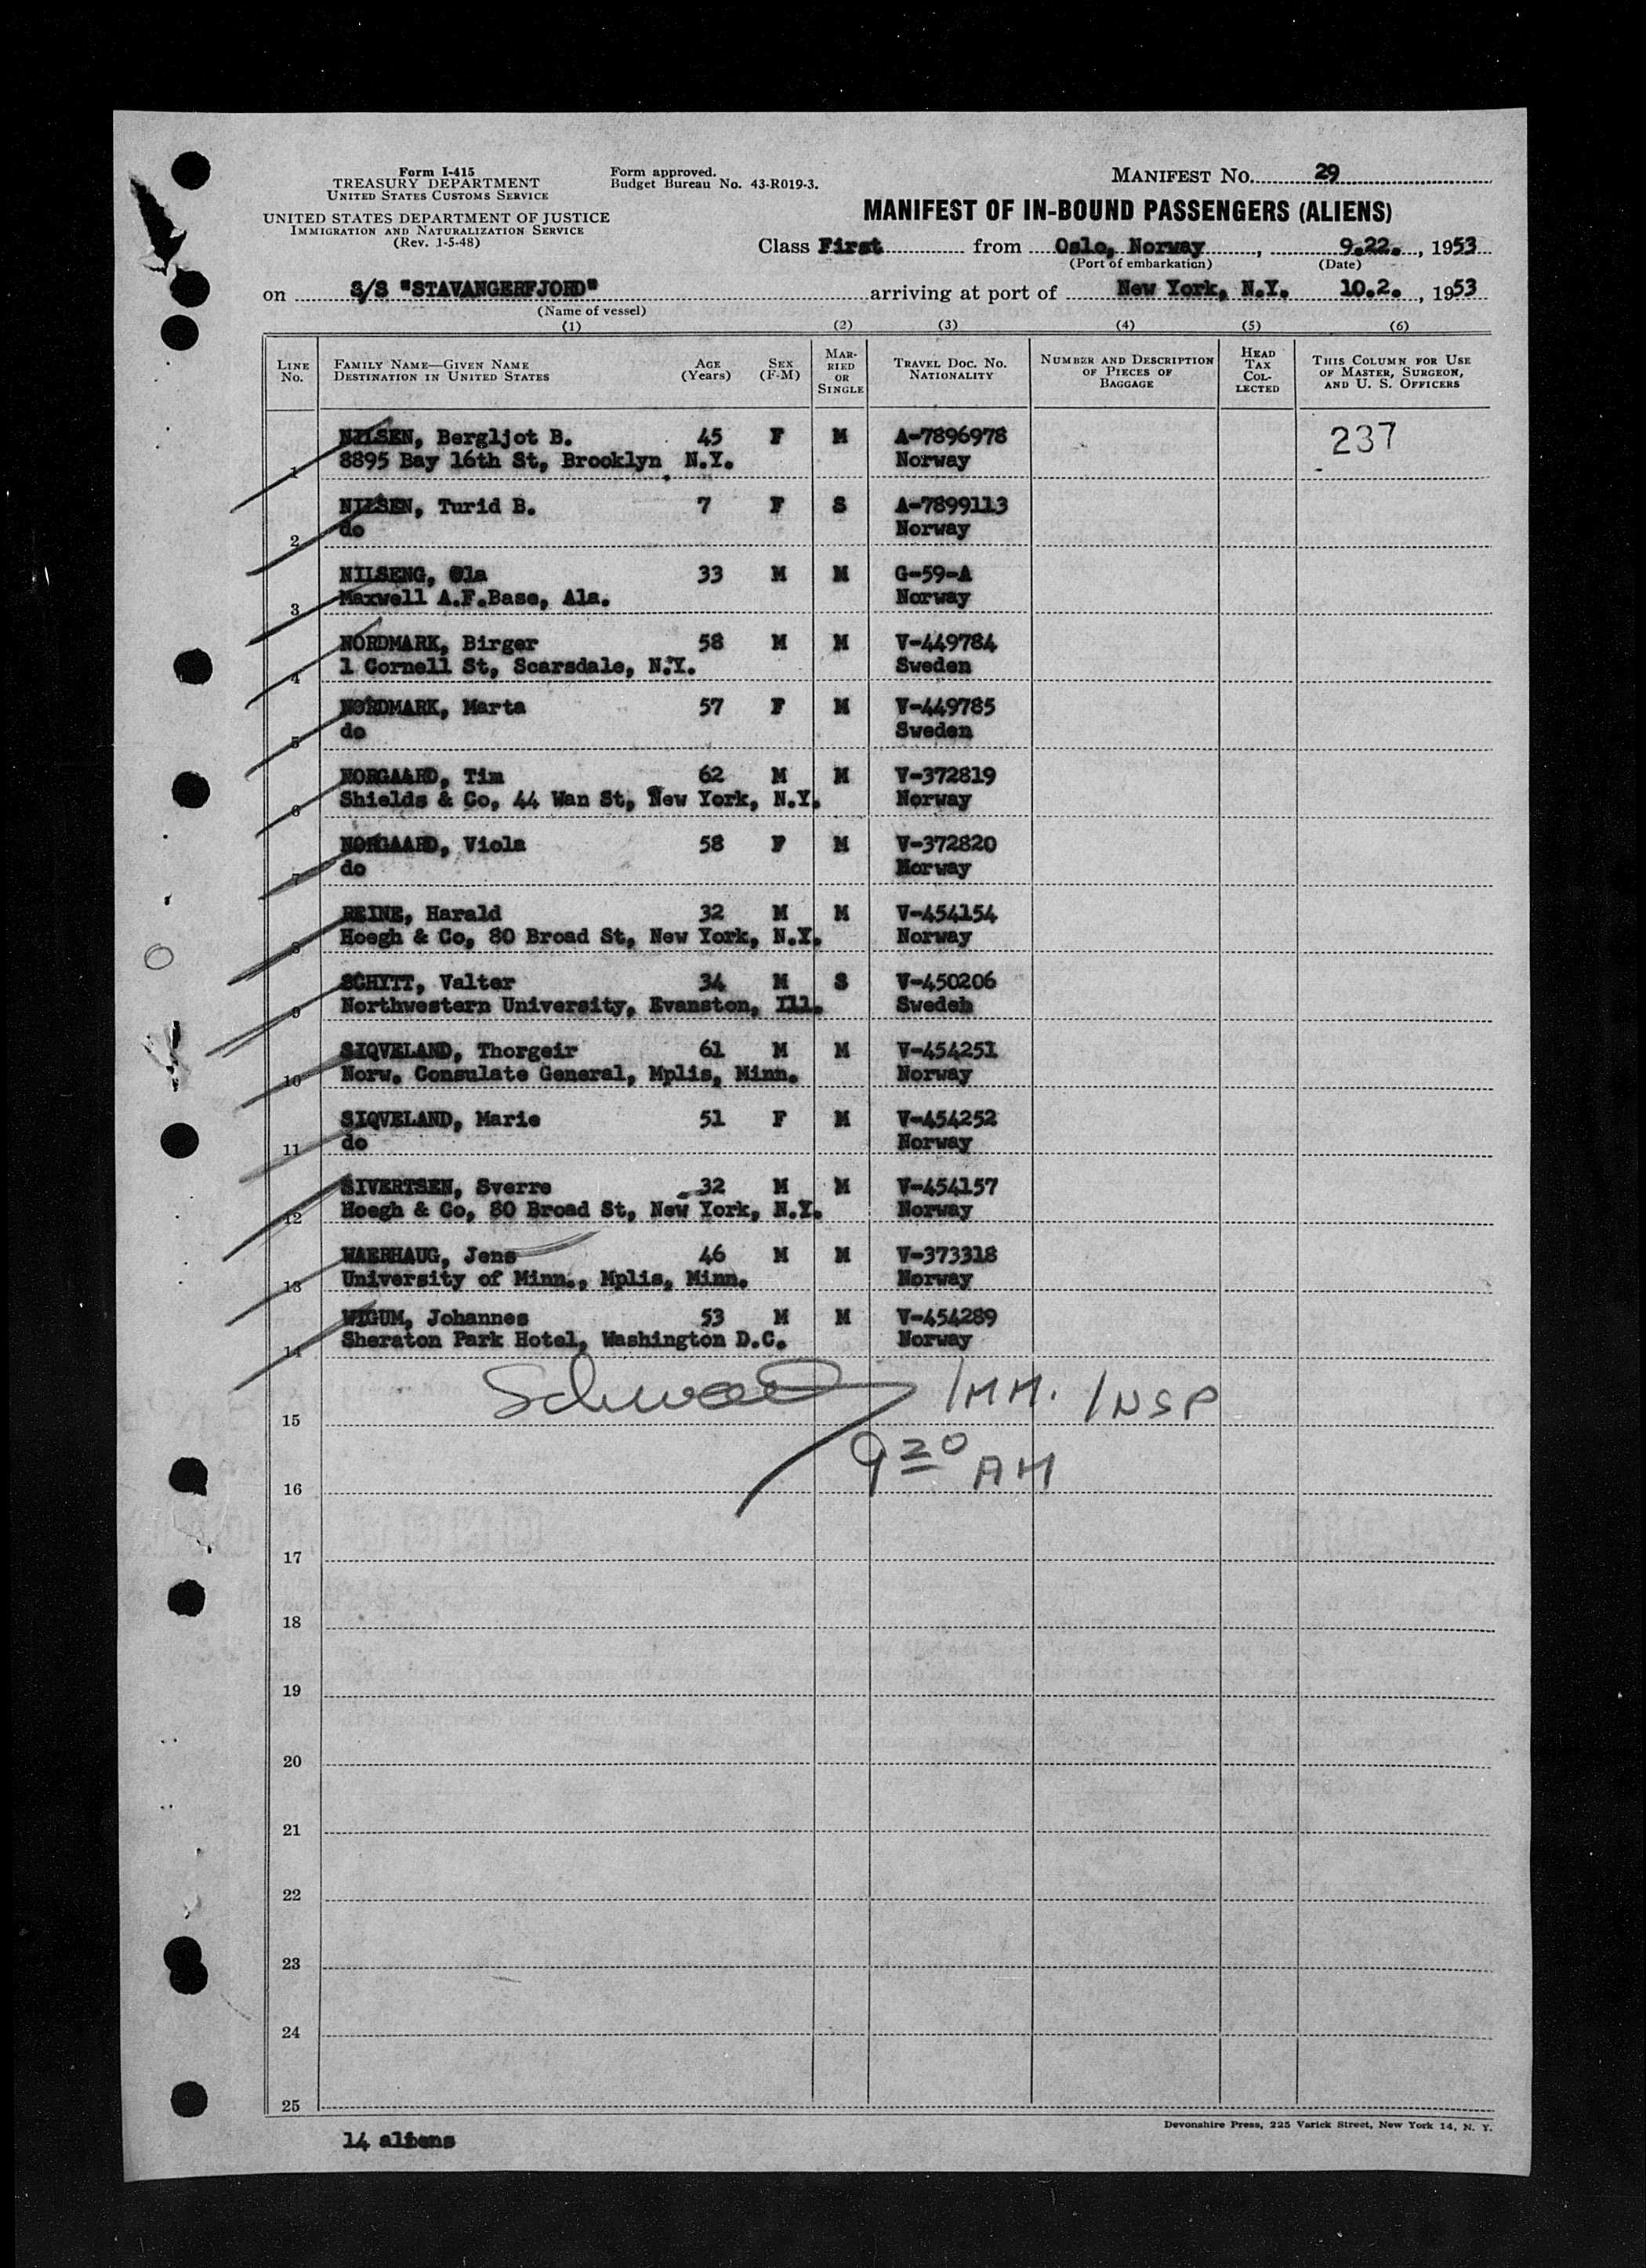 Form I-415
TREASURY DEPARTMENT
UNITED STATES CUSTOMS SERVICE
UNITED STATES DEPARTMENT OF JUSTICE
IMMIGRATION AND NATURALIZATION SERVICE
(Rev. 1-5-48)
Form approved.
Budget Bureau No. 43-R019-3.
MANIFEST NO. 29
MANIFEST OF IN-BOUND PASSENGERS (ALIENS)
Class First from Oslo, Norway, 9.22., 1953
(Port of embarkation) (Date)
on S/S "STAVANGERFJORD" arriving at port of New York, N.Y. 10.2., 1953
(Name of vessel)
(1) (2) (3) (4) (5) (6)
LINE No. FAMILY NAME—GIVEN NAME DESTINATION IN UNITED STATES AGE (Years) SEX (F-M) MARRIED OR SINGLE TRAVEL DOC. NO. NATIONALITY NUMBER AND DESCRIPTION OF PIECES OF BAGGAGE HEAD TAX COLLECTED THIS COLUMN FOR USE OF MASTER, SURGEON, AND U. S. OFFICERS
NILSEN, Bergljot B. 45 F M A-7896978 237
1 8895 Bay 16th St, Brooklyn N.Y. Norway
NILSEN, Turid B. 7 F S A-7899113
2 do Norway
NILSENG, Ola 33 M M G-59-A
3 Maxwell A.F.Base, Ala. Norway
NORDMARK, Birger 58 M M V-449784
4 1 Cornell St, Scarsdale, N.Y. Sweden
NORDMARK, Marta 57 F M V-449785
5 do Sweden
NORGAARD, Tim 62 M M V-372819
6 Shields & Co, 44 Wan St, New York, N.Y. Norway
NORGAARD, Viola 58 F M V-372820
7 do Norway
REINE, Harald 32 M M V-454154
8 Hoegh & Co, 80 Broad St, New York, N.Y. Norway
SCHYTT, Valter 34 M S V-450206
9 Northwestern University, Evanston, Ill. Sweden
SIQVELAND, Thorgeir 61 M M V-454251
10 Norw. Consulate General, Mplis, Minn. Norway
SIQVELAND, Marie 51 F M V-454252
11 do Norway
SIVERTSEN, Sverre 32 M M V-454157
12 Hoegh & Co, 80 Broad St, New York, N.Y. Norway
WAERHAUG, Jens 46 M M V-373318
13 University of Minn., Mplis, Minn. Norway
WIGUM, Johannes 53 M M V-454289
14 Sheraton Park Hotel, Washington D.C. Norway
IMM. INSP
15
9 20 AM
16
17
18
19
20
21
22
23
24
25
Devonshire Press, 225 Varick Street, New York 14, N. Y.
14 aliens